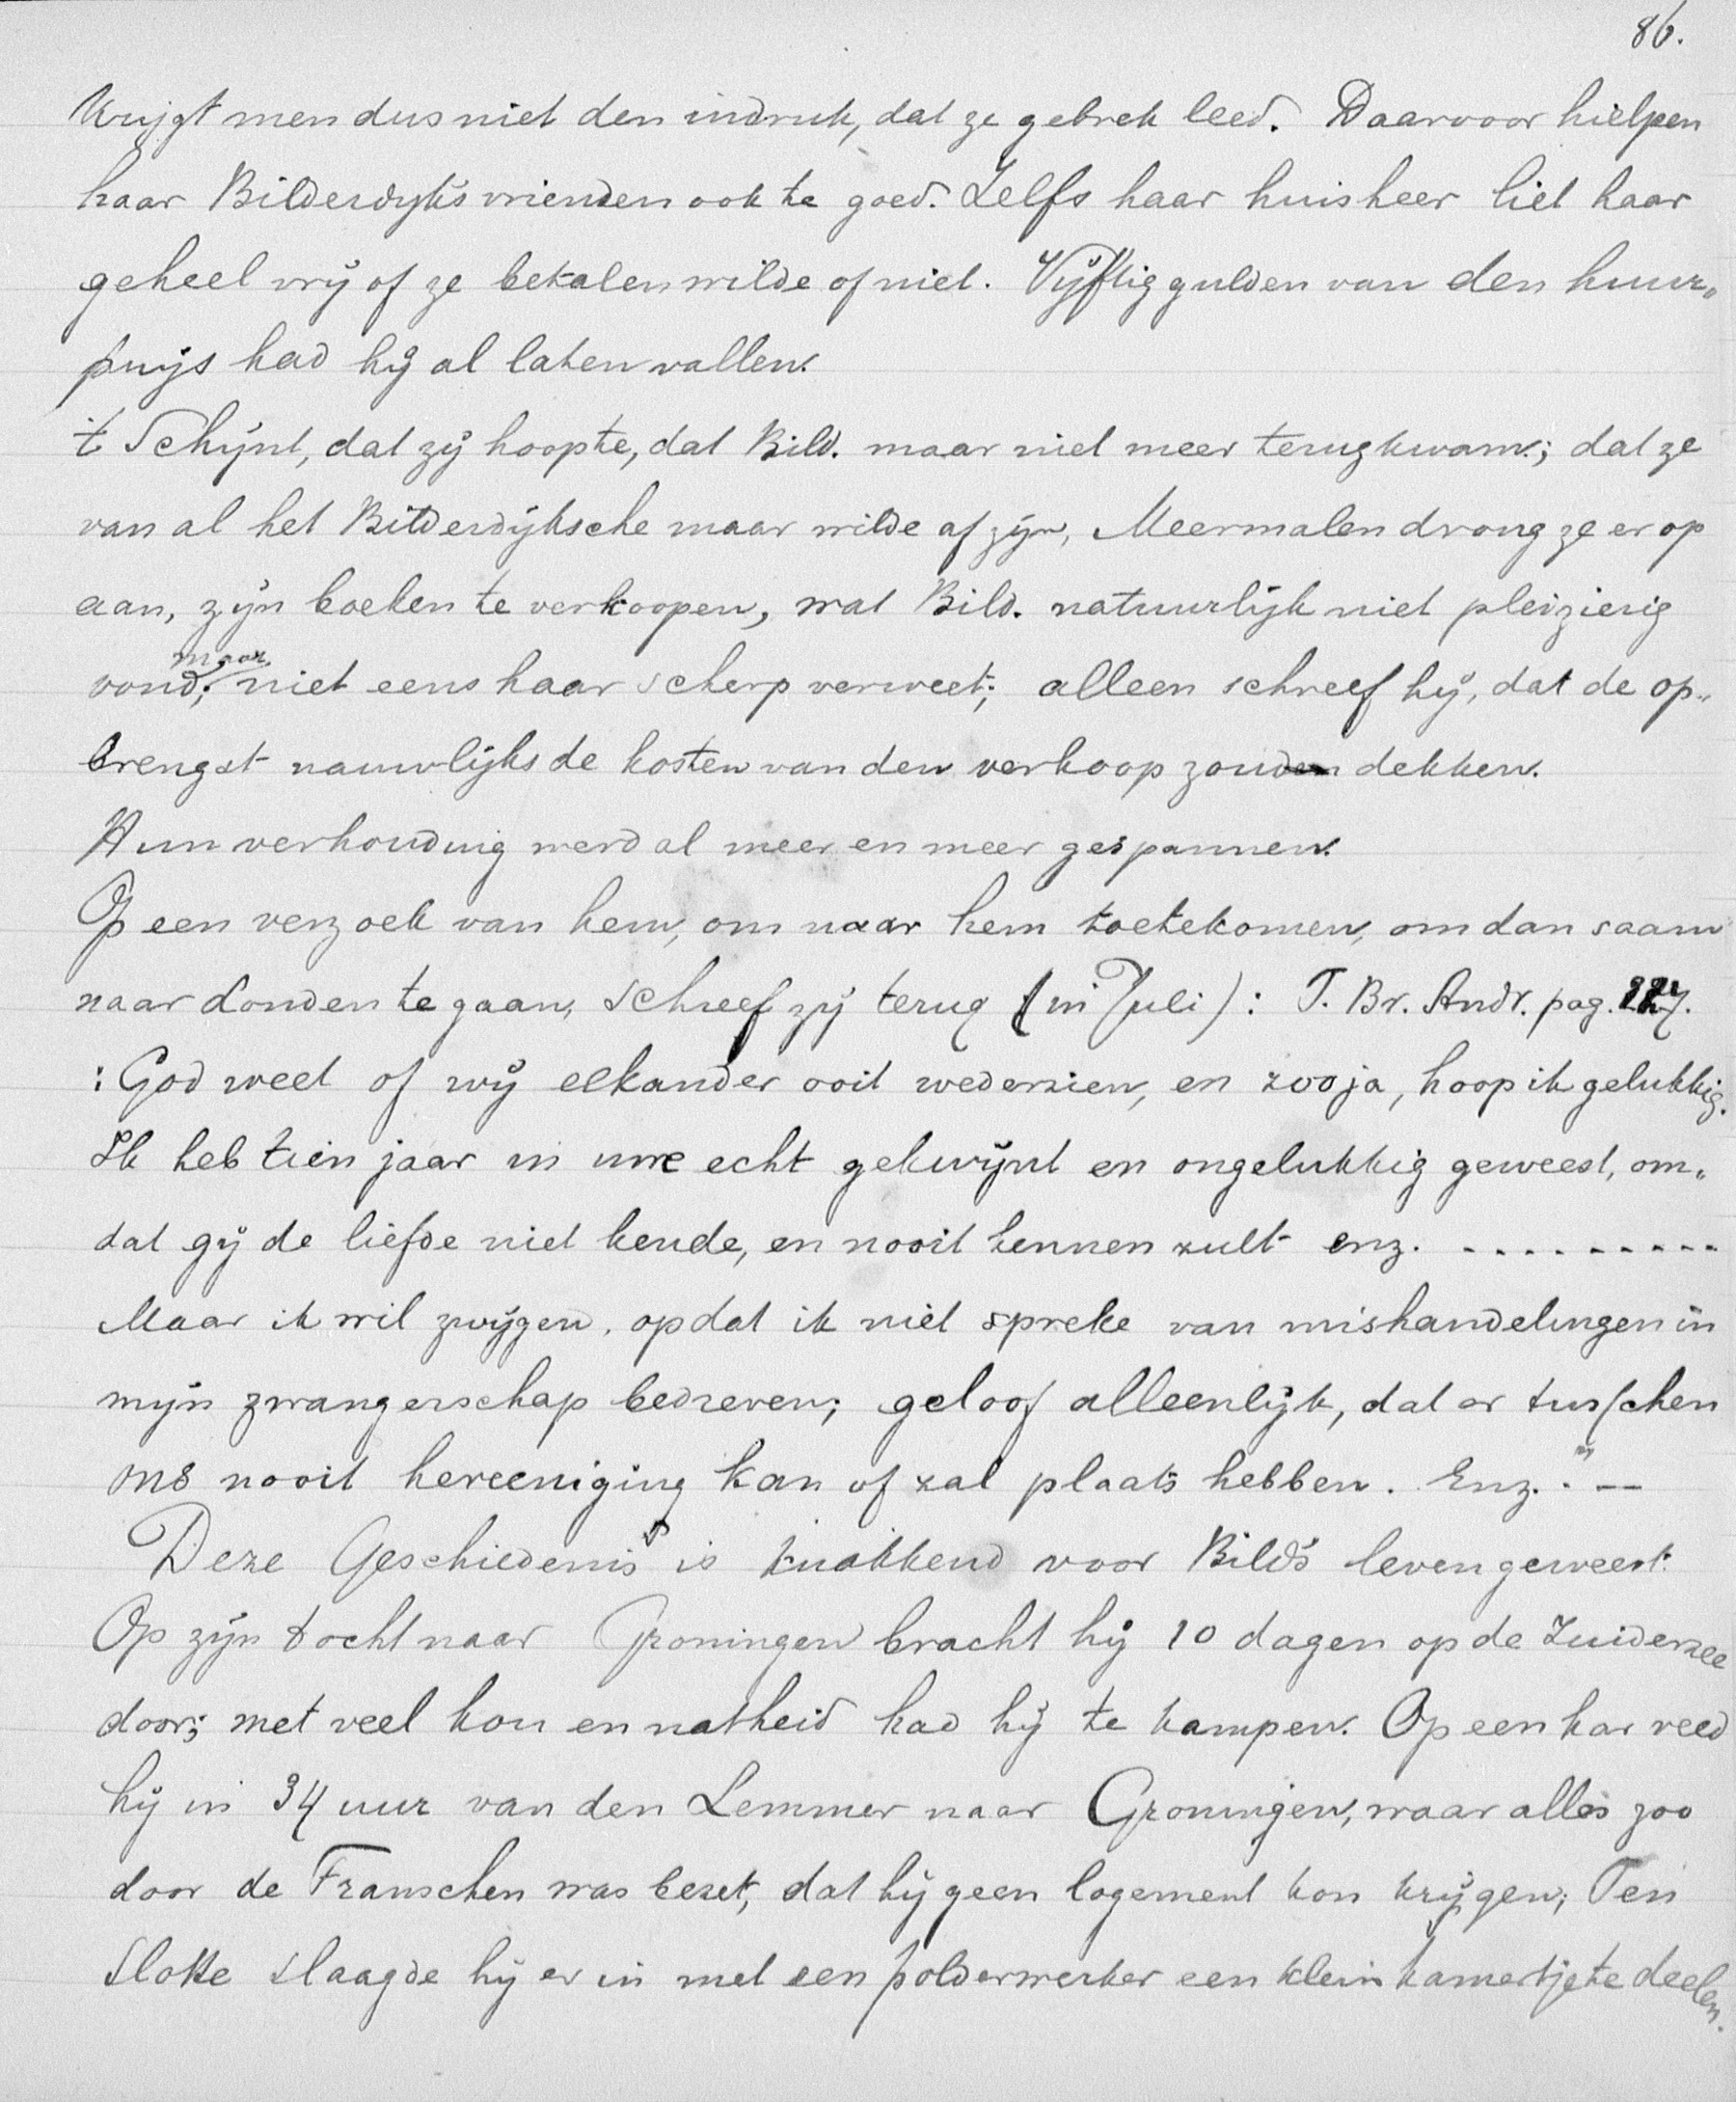 86.
krijgt men dus niet den indruk, dat ze gebrek leed. Daarvoor hielpen
haar Bilderdyk's vrienden ook te goed. Zelfs haar huisheer liet haar
geheel vrij of ze betalen wilde of niet. Vijftig gulden van den huur„
prijs had hij al laten vallen.
't Schijnt, dat zij hoopte, dat Bild. maar niet meer terugkwam; dat ze
van al het Bilderdijksche maar wilde af zijn, Meermalen drong ze er op
aan, zijn boeken te verkoopen, wat Bild. natuurlijk niet pleizierig
vond; maar niet eens haar scherp verweet; alleen schreef hij, dat de op„
brengst nauwlijks de kosten van den verkoop zouden dekken.
Hun verhouding werd al meer en meer gespannen.
Op een verzoek van hem, om naar hem toetekomen, om dan saam
naar Londen te gaan, schreef zij terug (in Juli): T. Br. Andr. pag.
: God weet of wij elkander ooit wederzien, en zoo ja, hoop ik gelukkig.
Ik heb tien jaar in uwe echt gekwijnt en ongelukkig geweest, om„
dat gij de liefde niet kende, en nooit kennen zult enz. . . . . . . . . .
Maar ik wil zwijgen, opdat ik niet spreke van mishandelingen in
mijn zwangerschap bedreven; geloof alleenlijk, dat er tusschen
ons nooit hereeniging kan of zal plaats hebben. Enz. ." —
Deze Geschiedenis is knakkend voor Bild's leven geweest.
Op zijn tocht naar Groningen bracht hij 10 dagen op de Zuiderzee
door; met veel kou en natheid had hij te kampen. Op een kar reed
hij in 34 uur van den Lemmer naar Groningen, waar alles zoo
door de Franschen was bezet, dat hij geen logement kon krijgen; Ten
Slotte slaagde hij er in met een polderwerker een klein kamertje te deelen.